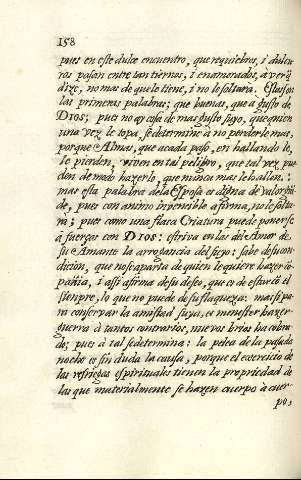 158
pues en este dulce encuentro, que requiebros, i dulçu
ras pasan entre tan tiernos, i enamorados, à ver q̃
dize, no mas de que le tiene, i no le soltara. Estas son
las primeras palabras; que buenas, que a gusto de
DIOS; pues no ay cosa de mas gusto suyo, que quien
una vez le topa, se determine à no perderle mas,
porque Almas, que acada paso, en hallando le,
le pierden, viven en tal peligro, que tal vez pue
den de modo hazerlo, que nunca mas le hallen:
mas esta palabra de la Esposa es digna de valor grã
de, pues con animo invencible afirma, no le solta
rà; pues como una flaca Criatura puede ponerse
à fuerças con DIOS: estriva en las del Amor de
su Amante la arrogancia del suyo: sabe de su con
dicion, que no se aparta de quien le quiere hazer cõ
pañia, i asi afirma de su deseo, que es de estarse cõ el
sienpre, lo que no puede de su flaqueza: mas si pa
ra conservar la amistad suya, es menester hazer
guerra à tantos contrarios, nuevos brios ha cobra
do; pues à tal se determina: la pelea de la pasada
noche es sin duda la causa, porque el exercicio de
las refriegas espirituales tienen la propriedad de
las que materialmente se hazen cuerpo à cuer
po,